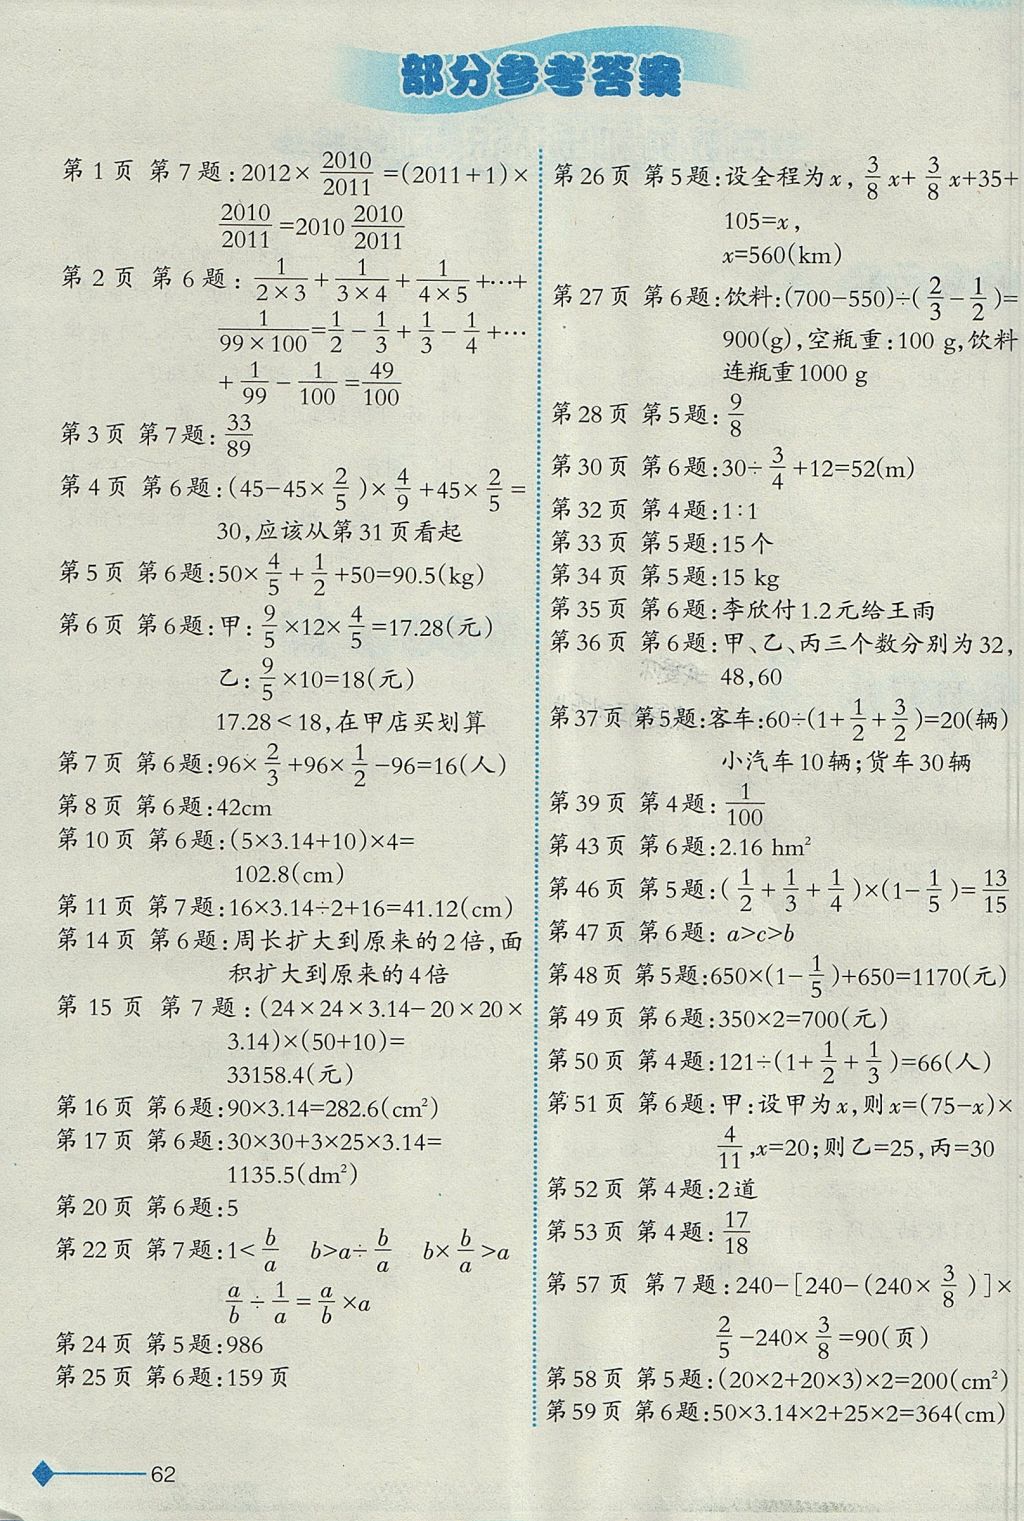 部分参考答案
第1页 第7题:2012×2010/2011=(2011+1)×
2010/2011=2010 2010/2011
第2页 第6题:1/(2×3)+1/(3×4)+1/(4×5)+…+
1/(99×100)=1/2-1/3+1/3-1/4+…
+1/99-1/100=49/100
第3页 第7题:33/89
第4页 第6题:(45-45×2/5)×4/9+45×2/5=
30,应该从第31页看起
第5页 第6题:50×4/5+1/2+50=90.5(kg)
第6页 第6题:甲:9/5×12×4/5=17.28(元)
乙:9/5×10=18(元)
17.28<18,在甲店买划算
第7页 第6题:96×2/3+96×1/2-96=16(人)
第8页 第6题:42cm
第10页 第6题:(5×3.14+10)×4=
102.8(cm)
第11页 第7题:16×3.14÷2+16=41.12(cm)
第14页 第6题:周长扩大到原来的2倍,面
积扩大到原来的4倍
第15页 第7题:(24×24×3.14-20×20×
3.14)×(50+10)=
33158.4(元)
第16页 第6题:90×3.14=282.6(cm²)
第17页 第6题:30×30+3×25×3.14=
1135.5(dm²)
第20页 第6题:5
第22页 第7题:1<b/a b>a÷b/a b×b/a>a
a/b÷1/a=a/b×a
第24页 第5题:986
第25页 第6题:159页
第26页 第5题:设全程为x,3/8x+3/8x+35+
105=x,
x=560(km)
第27页 第6题:饮料:(700-550)÷(2/3-1/2)=
900(g),空瓶重:100 g,饮料
连瓶重1000 g
第28页 第5题:9/8
第30页 第6题:30÷3/4+12=52(m)
第32页 第4题:1:1
第33页 第5题:15个
第34页 第5题:15 kg
第35页 第6题:李欣付1.2元给王雨
第36页 第6题:甲、乙、丙三个数分别为32,
48,60
第37页 第5题:客车:60÷(1+1/2+3/2)=20(辆)
小汽车10辆;货车30辆
第39页 第4题:1/100
第43页 第6题:2.16 hm²
第46页 第5题:(1/2+1/3+1/4)×(1-1/5)=13/15
第47页 第6题:a>c>b
第48页 第5题:650×(1-1/5)+650=1170(元)
第49页 第6题:350×2=700(元)
第50页 第4题:121÷(1+1/2+1/3)=66(人)
第51页 第6题:甲:设甲为x,则x=(75-x)×
4/11,x=20;则乙=25,丙=30
第52页 第4题:2道
第53页 第4题:17/18
第57页 第7题:240-[240-(240×3/8)]×
2/5-240×3/8=90(页)
第58页 第5题:(20×2+20×3)×2=200(cm²)
第59页 第6题:50×3.14×2+25×2=364(cm)
62